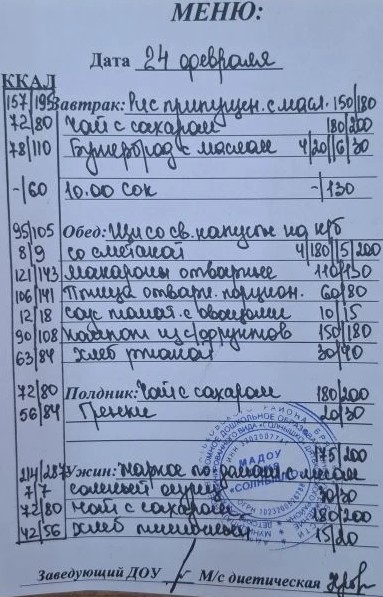 МЕНЮ:
Дата 24 февраля
ККАЛ
157/195 Завтрак: Рис припущен. с масл. 150/180
72/80 Чай с сахаром 180/200
78/110 Бутерброд с маслом 4/20//6/30
-/60 10.00 Сок -/130
95/105 Обед: Щи со св. капусты на к/б
8/9 со сметаной 4/180//5/200
121/143 Макароны отварные 110/130
106/141 Птица отварн. порцион. 60/80
12/18 Соус томат. с овощами 10/15
90/108 Компот из с/фруктов 150/180
63/84 Хлеб ржаной 30/40
72/80 Полдник: Чай с сахаром 180/200
56/84 Гренки 20/30
175/200
214/287 Ужин: Жаркое по-домашн. с мясом
7/7 соленый огурец 30/30
72/80 Чай с сахаром 180/200
42/56 Хлеб пшеничный 15/20
МАДОУ
«СОЛНЫШКО»
Заведующий ДОУ М/с диетическая